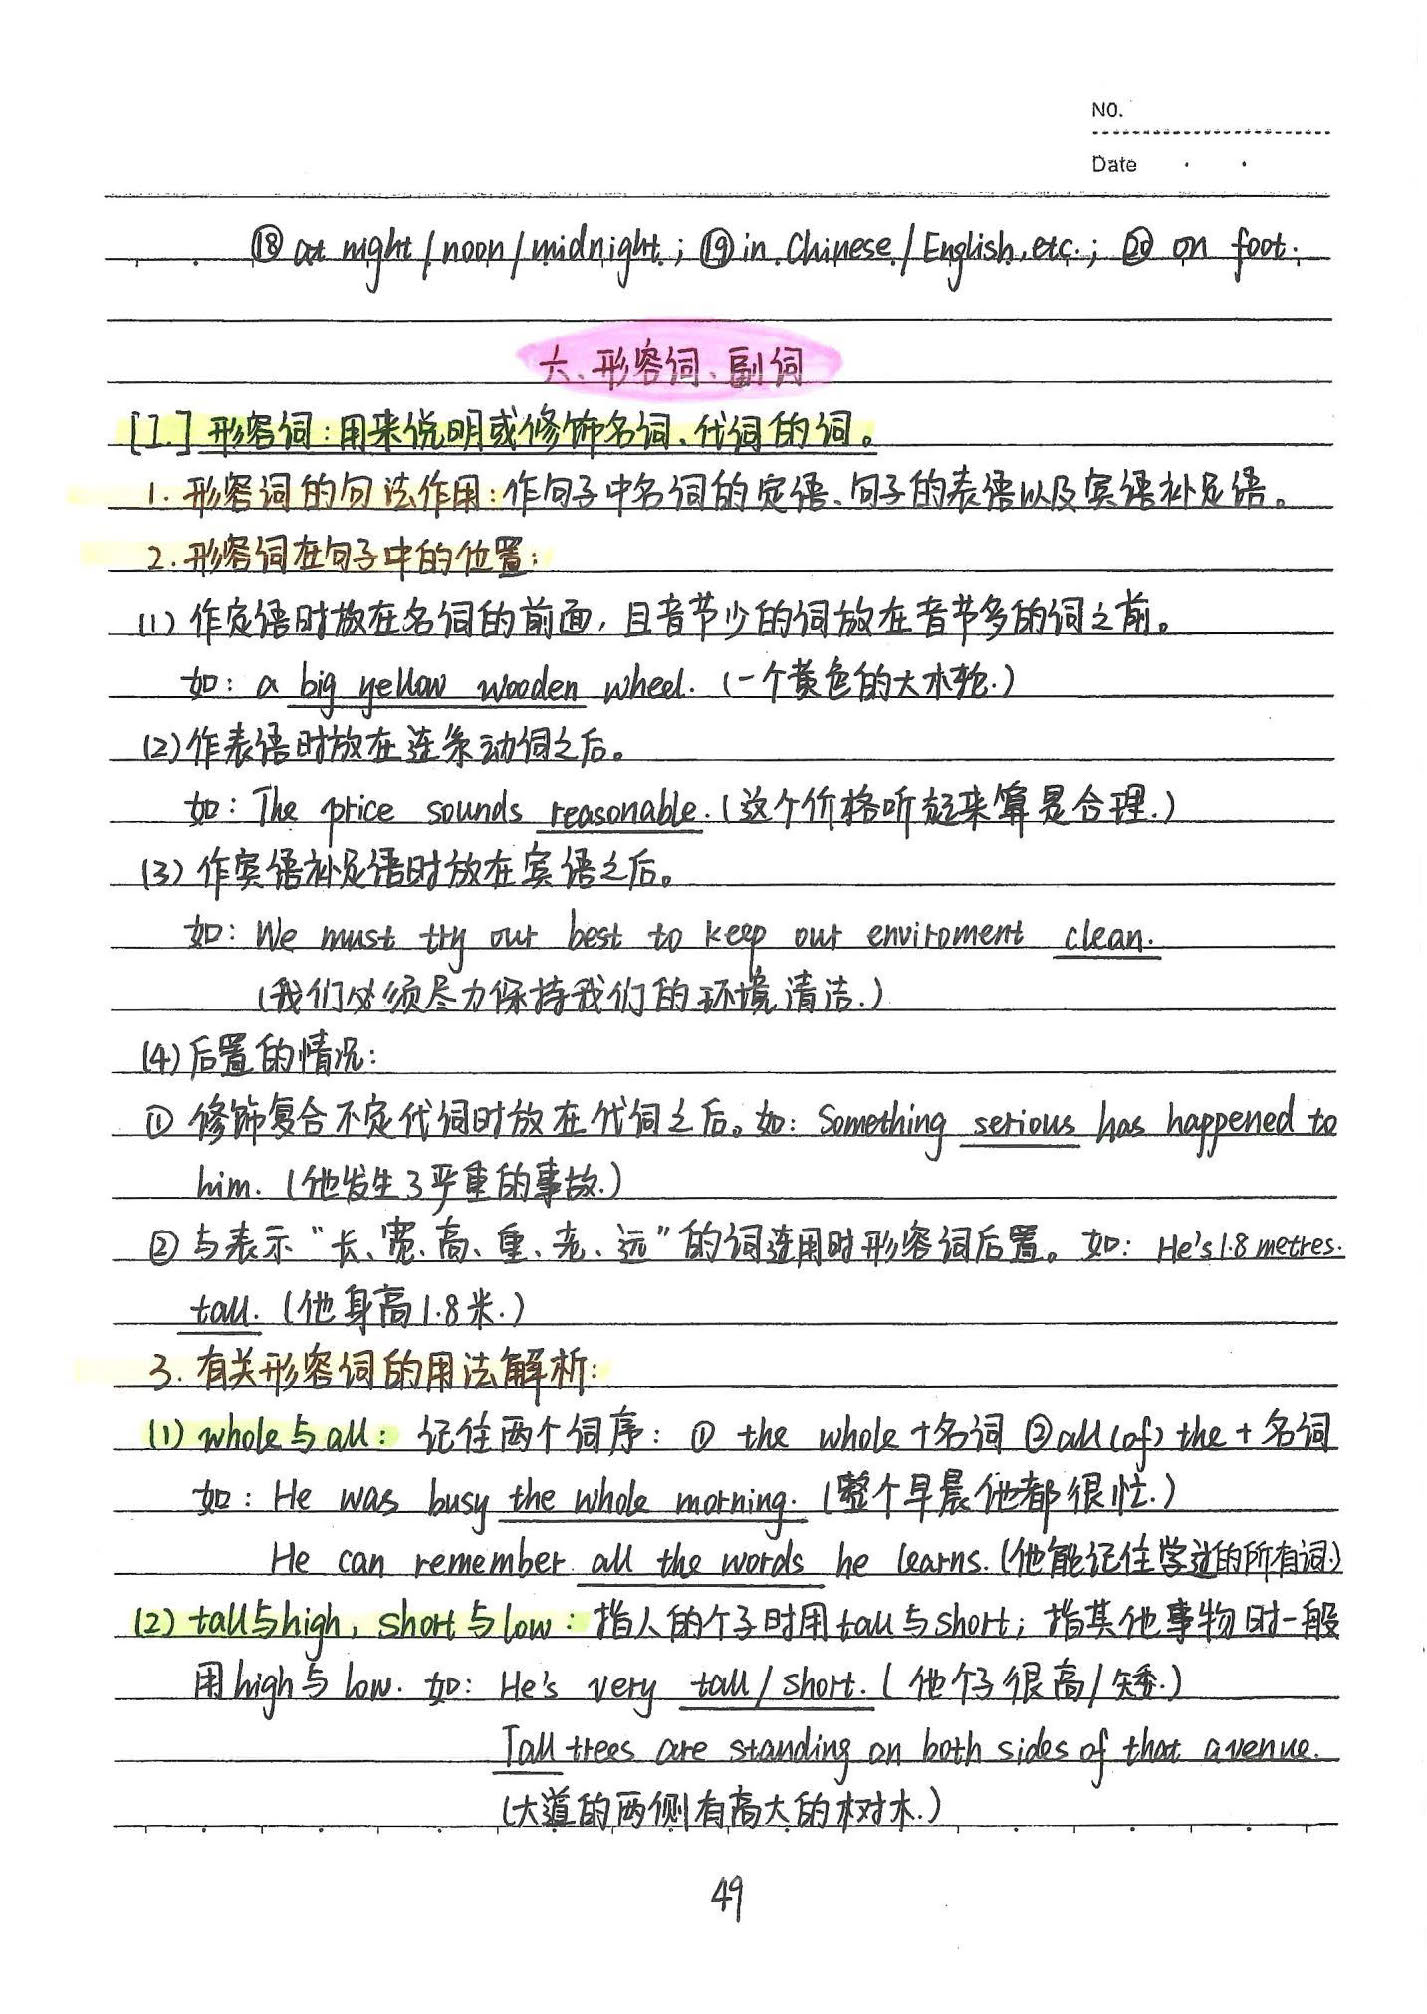 NO.
Date
⑱ at night/noon/midnight; ⑲ in Chinese/English, etc.; ⑳ on foot.
六、形容词、副词
[I.] 形容词:用来说明或修饰名词、代词的词。
1. 形容词的句法作用:作句子中名词的定语、句子的表语以及宾语补足语。
2. 形容词在句子中的位置:
(1) 作定语时放在名词的前面,且音节少的词放在音节多的词之前。
如: a big yellow wooden wheel. (一个黄色的大木轮.)
(2) 作表语时放在连系动词之后。
如: The price sounds reasonable. (这个价格听起来算是合理.)
(3) 作宾语补足语时放在宾语之后。
如: We must try our best to keep our enviroment clean.
(我们必须尽力保持我们的环境清洁.)
(4) 后置的情况:
① 修饰复合不定代词时放在代词之后。如: Something serious has happened to
him. (他发生了严重的事故.)
② 与表示“长、宽、高、重、老、远”的词连用时形容词后置。如: He's 1.8 metres.
tall. (他身高1.8米.)
3. 有关形容词的用法解析:
(1) whole与all: 记住两个词序: ① the whole +名词 ②all (of) the + 名词
如: He was busy the whole morning. (整个早晨他都很忙.)
He can remember all the words he learns. (他能记住学过的所有词.)
(2) tall与high, short与low: 指人的个子时用tall与short; 指其他事物时一般
用high与low. 如: He's very tall/short. (他个子很高/矮.)
Tall trees are standing on both sides of that avenue.
(大道的两侧有高大的树木.)
49